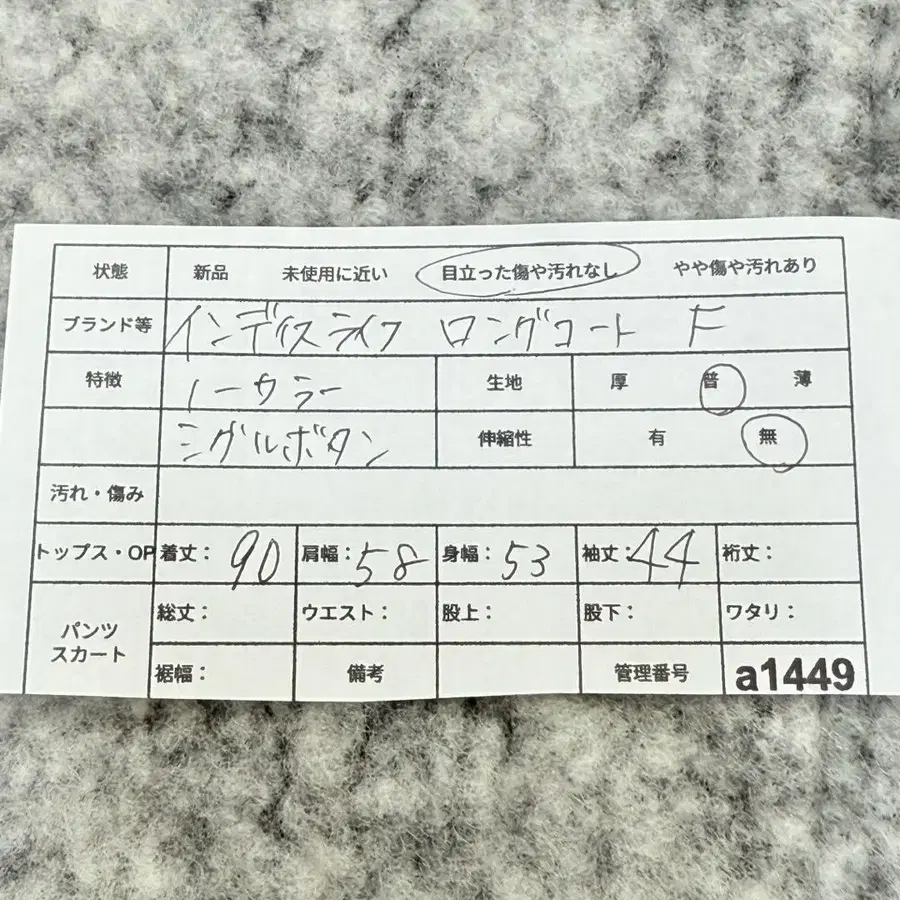 状態 新品 未使用に近い 目立った傷や汚れなし やや傷や汚れあり
ブランド等 インディスライフ ロングコート F
特徴 ノーカラー 生地 厚 普 薄
シグルボタン 伸縮性 有 無
汚れ・傷み
トップス・OP 着丈: 90 肩幅: 58 身幅: 53 袖丈: 44 裄丈:
パンツ スカート 総丈: ウエスト: 股上: 股下: ワタリ:
裾幅: 備考 管理番号 a1449